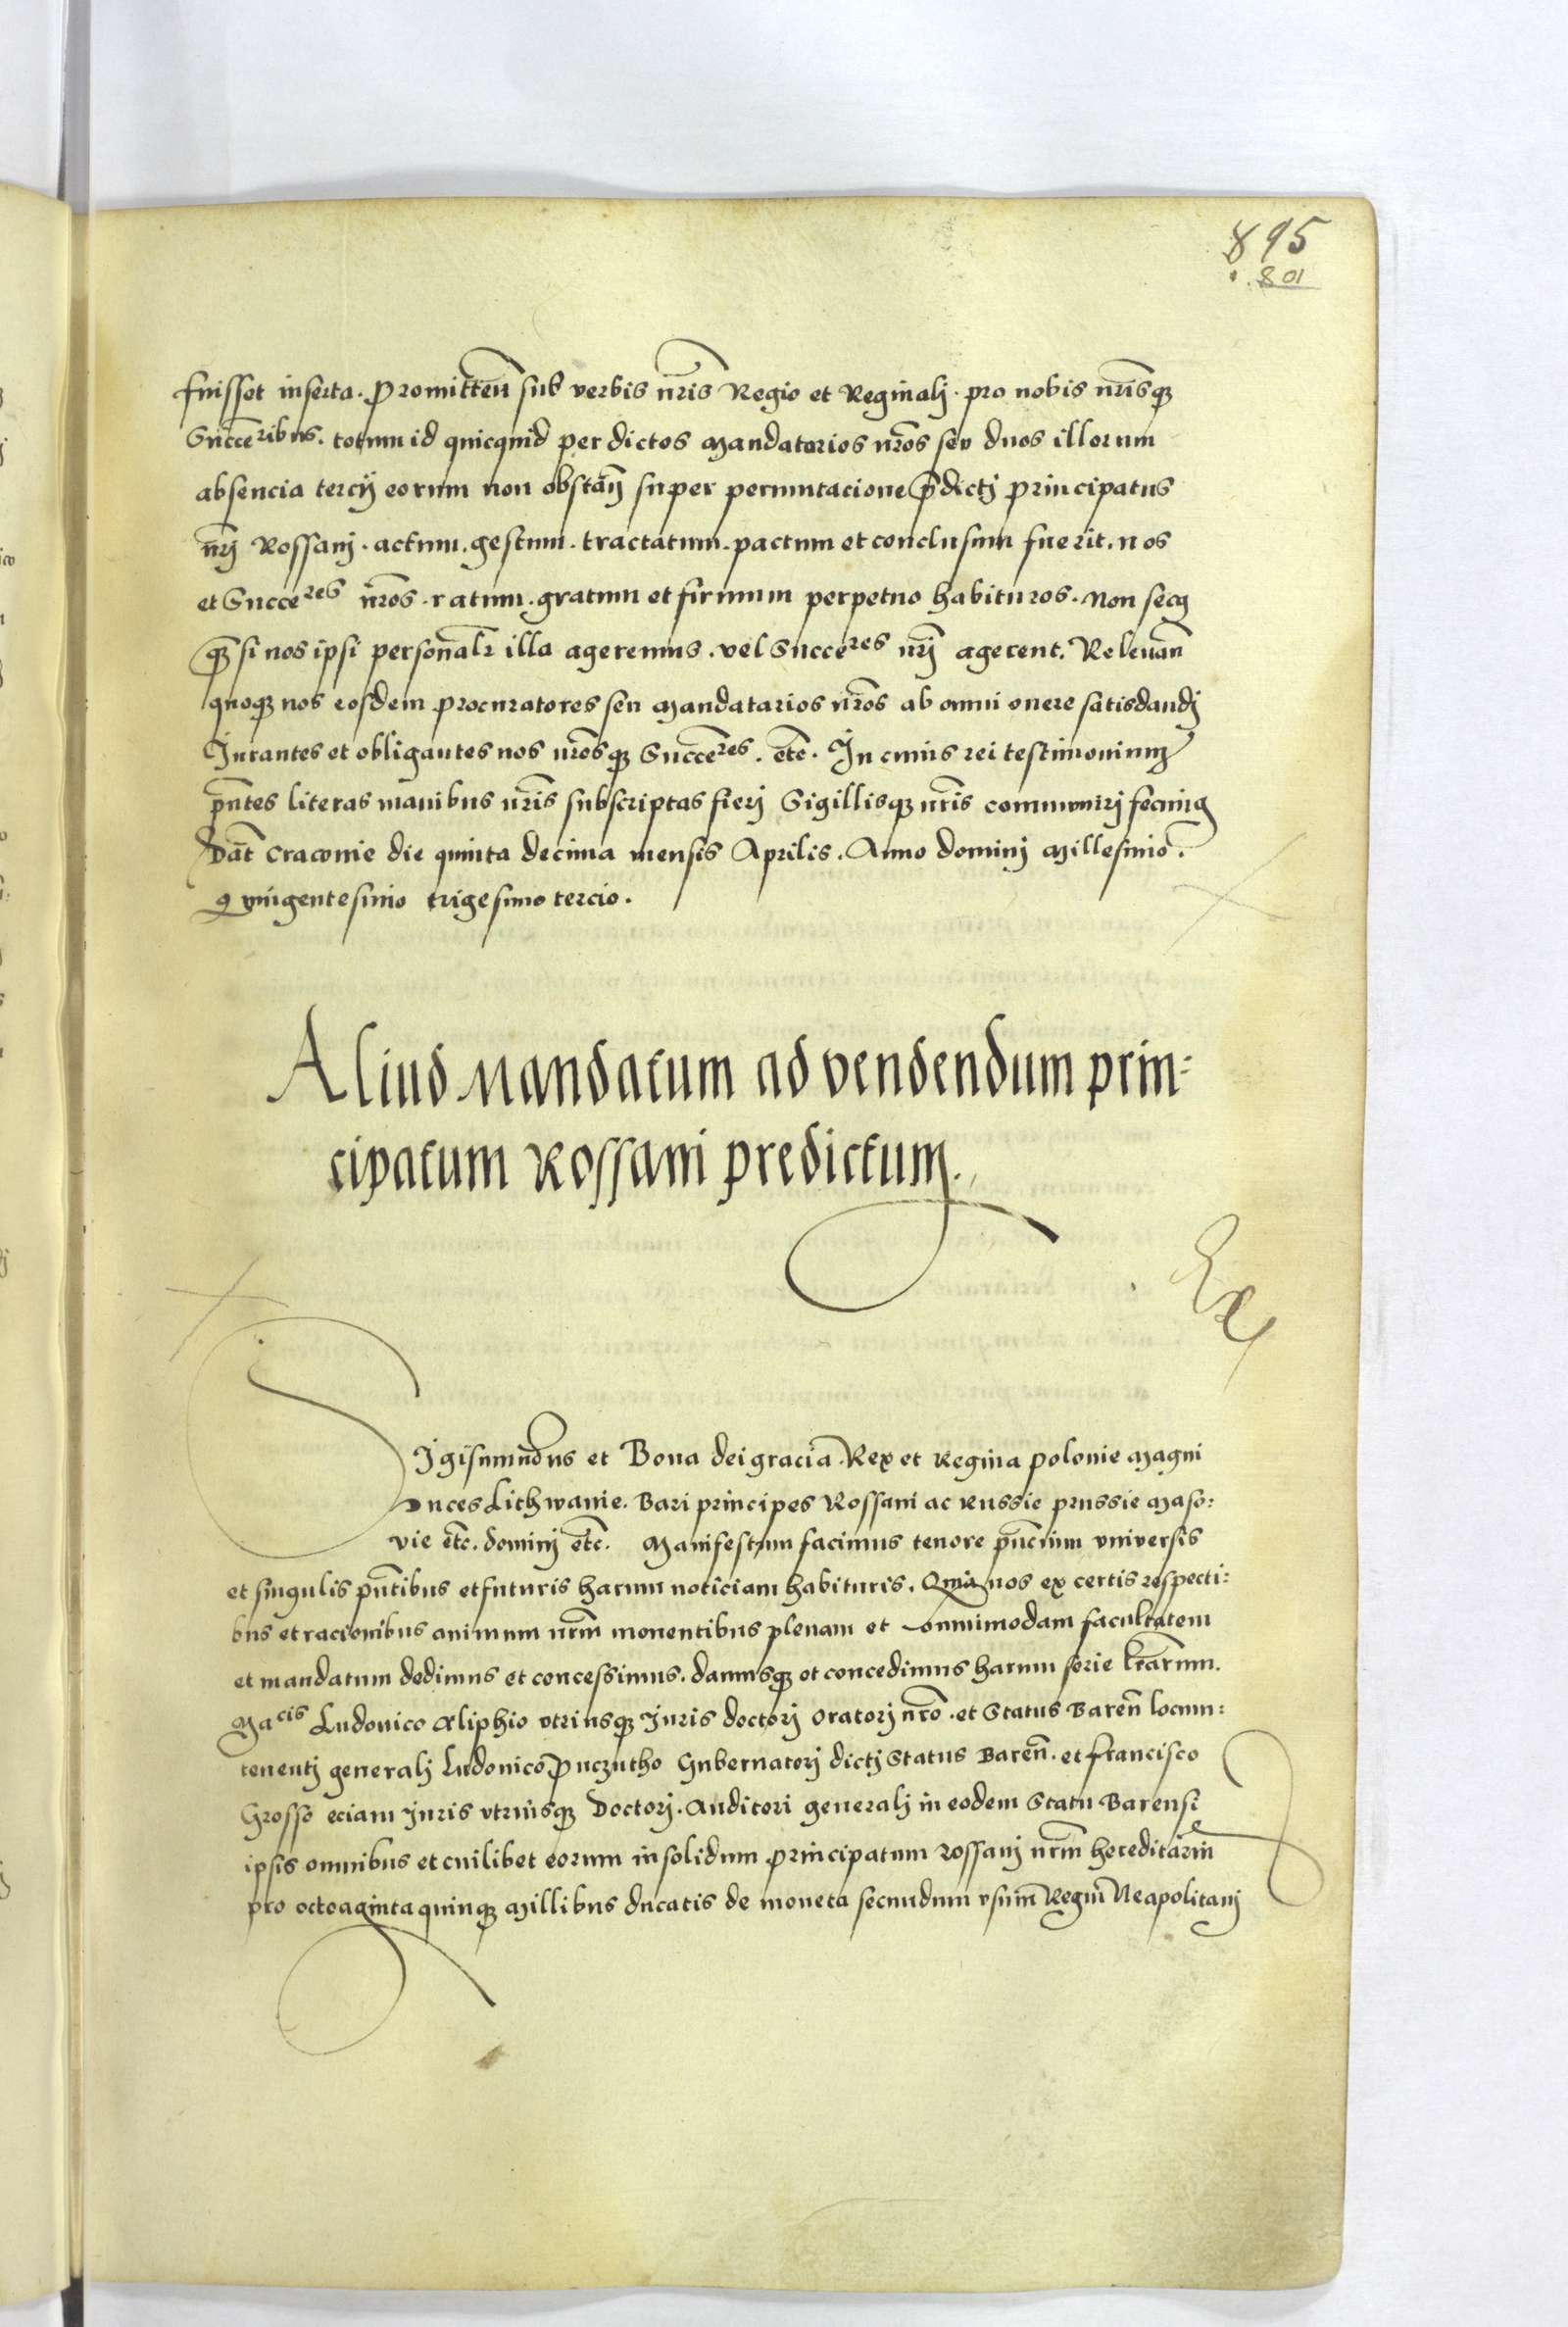 895
801
fuisset inserta. Promitteñ sub verbis nr̃is Regio et Reginalj. pro nobis nr̃isqꝫ
Succeribus. totum id quicquid per dictos Mandatorios nr̃os seu duos illorum
absencia tercij eorum non obstañ super permutacione p̃dictj principatus
nr̃j Rossanj. actum. gestum. tractatum. pactum et conclusum fuerit. nos
et Succeres nr̃os. ratum. gratum et firmum perpetuo habituros. Non secꝯ
qꝫ si nos ipsi personalr̃ illa ageremus. vel Succeres nr̃j agerent. Releuañ
quoqꝫ nos eosdem procuratores seu Mandatarios nr̃os ab omni onere satisdandj
Jurantes et obligantes nos nr̃osqꝫ Succeres. etc̃. In cuius rei testimonium
p̃ntes literas manibus nr̃is subscriptas fierj Sigillisqꝫ nr̃is communirj fecimꝯ
Dat̃ Cracouie die quinta decima mensis Aprilis. Anno dominj Millesimo.
quingentesimo trigesimo tercio.
Aliud Mandatum ad vendendum prin=
cipatum Rossani predictum.
Sigismundus et Bona dei gracia. Rex et Regina Polonie Magni
Duces Lithwanie. Bari principes Rossani ac Russie prussie Maso:
vie etc̃. dominj etc̃. Manifestum facimus tenore p̃ncium vniversis
et singulis p̃ntibus et futuris harum noticiam habituris. Quia nos ex certis respecti:
bus et racionibus animum nr̃m mouentibus plenam et omnimodam facultatem
et mandatum dedimus et concessimus. damusqꝫ et concedimus harum serie lr̃arum.
Macis Ludouico Aliphio vtriusqꝫ Juris doctorj oratorj nr̃o. et Status Bareñ locum:
tenentj generalj Ludouico Puczutho Gubernatorj dictj Status Bareñ. et francisco
Grosso eciam Juris vtriusqꝫ Doctorj. Auditori generalj in eodem Statu Barensi
ipsis omnibus et cuilibet eorum insolidum principatum Rossanj nr̃m hereditariũ
pro octoaginta quinqꝫ Millibus ducatis de moneta secundum vsum Regnj Neapolitanj